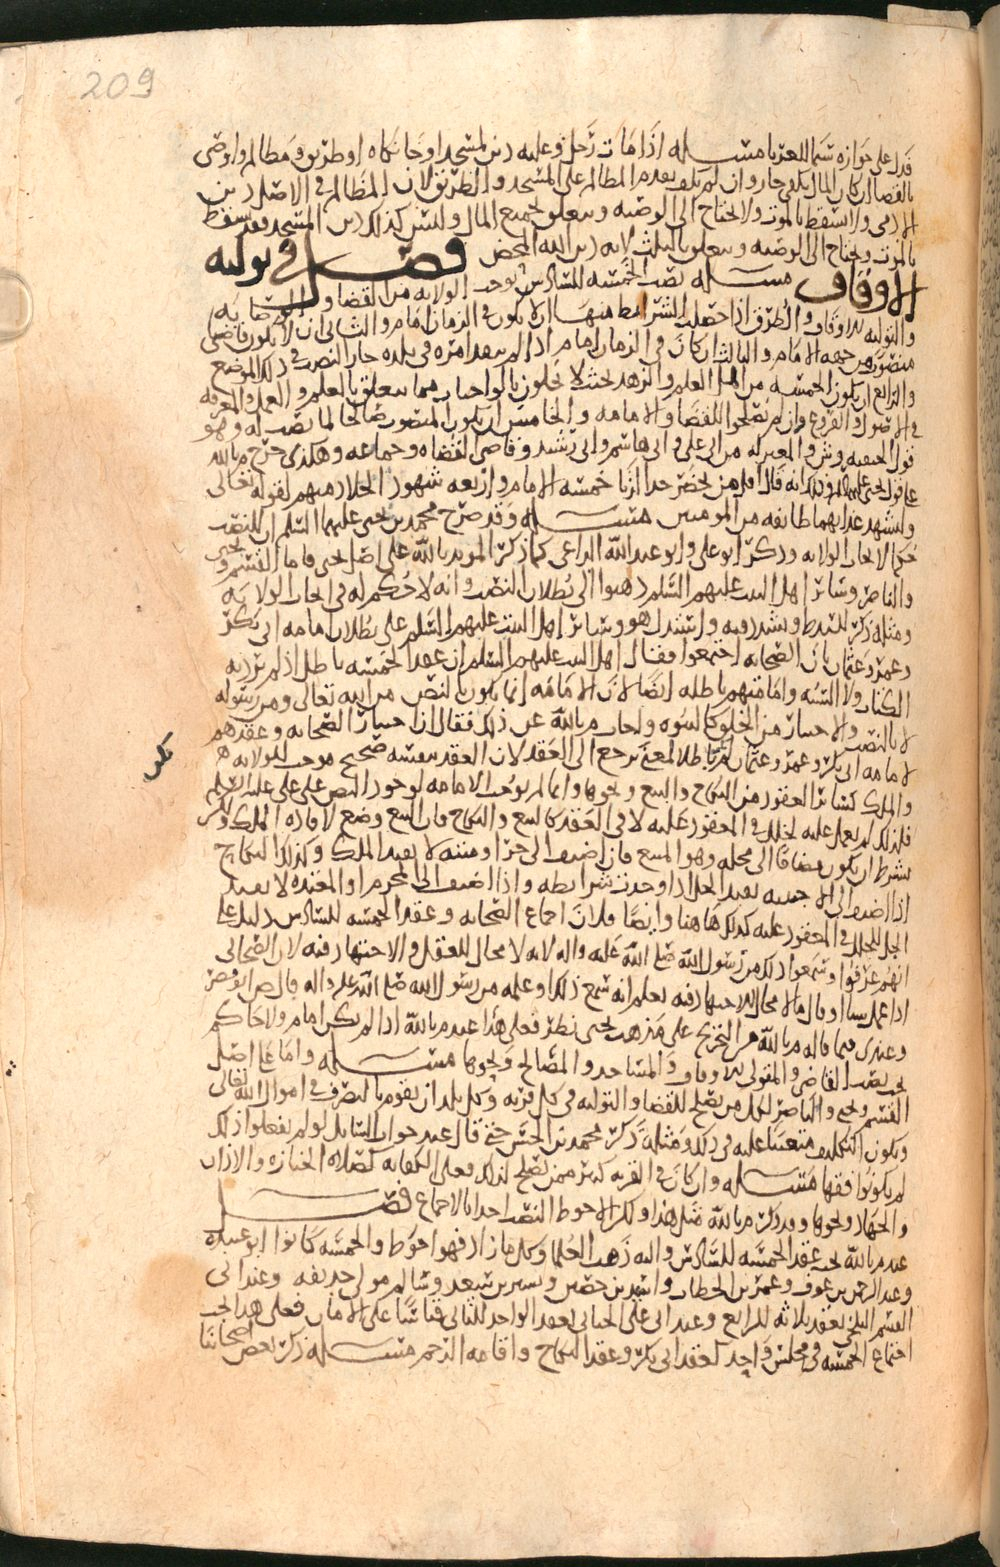 209
فدل على جوازه شما للعربا مسـله اذا مات رجل وعليه دين لمسجد او خانكاه او طريق ومظالم واوصى
بالقضا ان كان المال يكفي جاز وان لم يكف يقدم المظالم على المسجد والطريق لان المظالم في الاصل دين
لادمي ولا تسقط بالموت ولا يحتاج الى الوصيه ويتعلق بجميع المال وليس كذلك دين المسجد فقد يسقط
بالموت ويحتاج الى الوصيه ويتعلق بالثلث لانه دين الله المحض فصـل في توليه
الاوقاف مسـله نصب الخمسه للسادس توجب الولايه من القضا والوصايه
والتوليه للاوقاف والطرق اذا حصلت الشرائط منها ان لا يكون في الزمان امام والثاني ان لا يكون قاضي
منصوب من جهه الامام والثالث ان كان في الزمان امام اذا لم ينفذ امره في بلده جاز النصب في ذلك الموضع
والرابع ان يكون الخمسه من اهل العلم والزهد بحيث لا يخلون بالواجبات مما يتعلق بالعلم والعمل والمعرفه
في الاصول والفروع وان لم يصلحوا للقضا والامامه والخامس ان يكون المنصوب صالحا لما نصب له وهو
قول الحنفيه وش والمعتزله من ابي علي وابي هاشم وابي رشيد وقاضي القضاه وجماعه وهكذى خرج م بالله
على قول يحيى عليهما السلم وذلك انه قال اقل من يحضر حد الزنا خمسه الامام واربعه شهود الجلاد منهم لقوله تعالى
وليشهد عذابهما طايفه من المومنين مسـله وقد صرح محمد بن يحيى عليهما السلم ان للنصب
حكما لايجاب الولايه وذكر ابو علي وابو عبد الله الداعي كما ذكر المويد بالله على اصل يحيى فاما القسم ويحيى
والناصر وسائر اهل البيت عليهم السلم ذهبوا الى بطلان النصب وانه لا حكم له في ايجاب الولايه
ومثله ذكر للسد ط وشدد فيه واستدل هو وسائر اهل البيت عليهم السلم على بطلان امامه ابي بكر
وعمر وعثمان بان الصحابه اجتمعوا فقال اهل البيت عليهم السلم ان عقد الخمسه باطل اذ لم يرد به
الكتاب ولا السنه وامامتهم باطله ايضا لان الامامه انما يكون بالنص من الله تعالى ومن رسوله
لا بالنصب والاختيار من الخلق كالنبوه واجاب م بالله عن ذلك فقال ان اختيار الصحابه وعقدهم
لامامه ابي بكر وعمر وعثمان لم يبطل لمعنى يرجع الى العقد لان العقد بنفسه صحيح موجب للولايه
والملك كسائر العقود من النكاح والبيع ونحوها وانما لم يوجب الامامه لوجود النص على علي عليه السلم
فلذلك لم يعمل عليه لخلل في المعقود عليه لا في العقد كالبيع والنكاح فان البيع وضع لافاده الملك ولكن
بشرط ان يكون مضافا الى محله وهو المبيع فاذا اضيف الى حر او ميته لا يفيد الملك وكذلك النكاح
اذا اضيف الى الاجنبيه يفيد الحل اذا وجدت شرائطه واذا اضيف الى المحرم او المعتده لا يفيد
الحل لخلل في المعقود عليه كذلك هاهنا وايضا فلان اجماع الصحابه وعقد الخمسه للسادس دليل على
انهم عرفوا وسمعوا ذلك من رسول الله صلى الله عليه واله لانه لا مجال للعقل والاجتهاد فيه لان الصحابي
اذا عمل شيئا او قال ما لا مجال للاجتهاد فيه يعلم انه سمع ذلك او علمه من رسول الله صلى الله عليه واله قال ص ابو مضر
وعندي فيما قاله م بالله من التخريج على مذهب يحيى نظر فعلى هذا عند م بالله اذا لم يكن امام ولا حاكم
يجب نصب القاضي والمتولي للاوقاف والمساجد والمصالح ونحوها مسـله واما على اصل
القسم ويحيى والناصر لكل من يصلح للقضا والتوليه في كل قريه وكل بلد ان يقوم بالتصرف في اموال الله تعالى
ويكون التكليف متعينا عليه في ذلك ومثله ذكر محمد بن الحسن حتى قال عند جواب السائل لو لم يفعلوا ذلك
لم يكونوا فقها مسـله وان كان في القريه كثير ممن يصلح لذلك فعلى الكفايه كصلاه الجنازه والاذان
والجهاد ونحوها وقد ذكر م بالله مثل هذا ولكن الاحوط النصب اخذا بالاجماع فصـل
عند م بالله يجب عقد الخمسه للسادس واليه ذهب العلما وكل ما زاد فهو احوط والخمسه كانوا ابو عبيده
وعبد الرحمن بن عوف وعمر بن الخطاب واسيد بن حضير وبشير بن سعد وسالم مولى حذيفه وعند ابي
القسم البلخي يعقد ثلاثه للرابع وعند ابي علي الجبائي يعقد الواحد للثاني قياسا على الامام فعلى هذا يجب
اجتماع الخمسه في مجلس واحد لعقد ابي بكر وعقد النكاح واقامه الرجم مسـله ذكر بعض اصحابنا